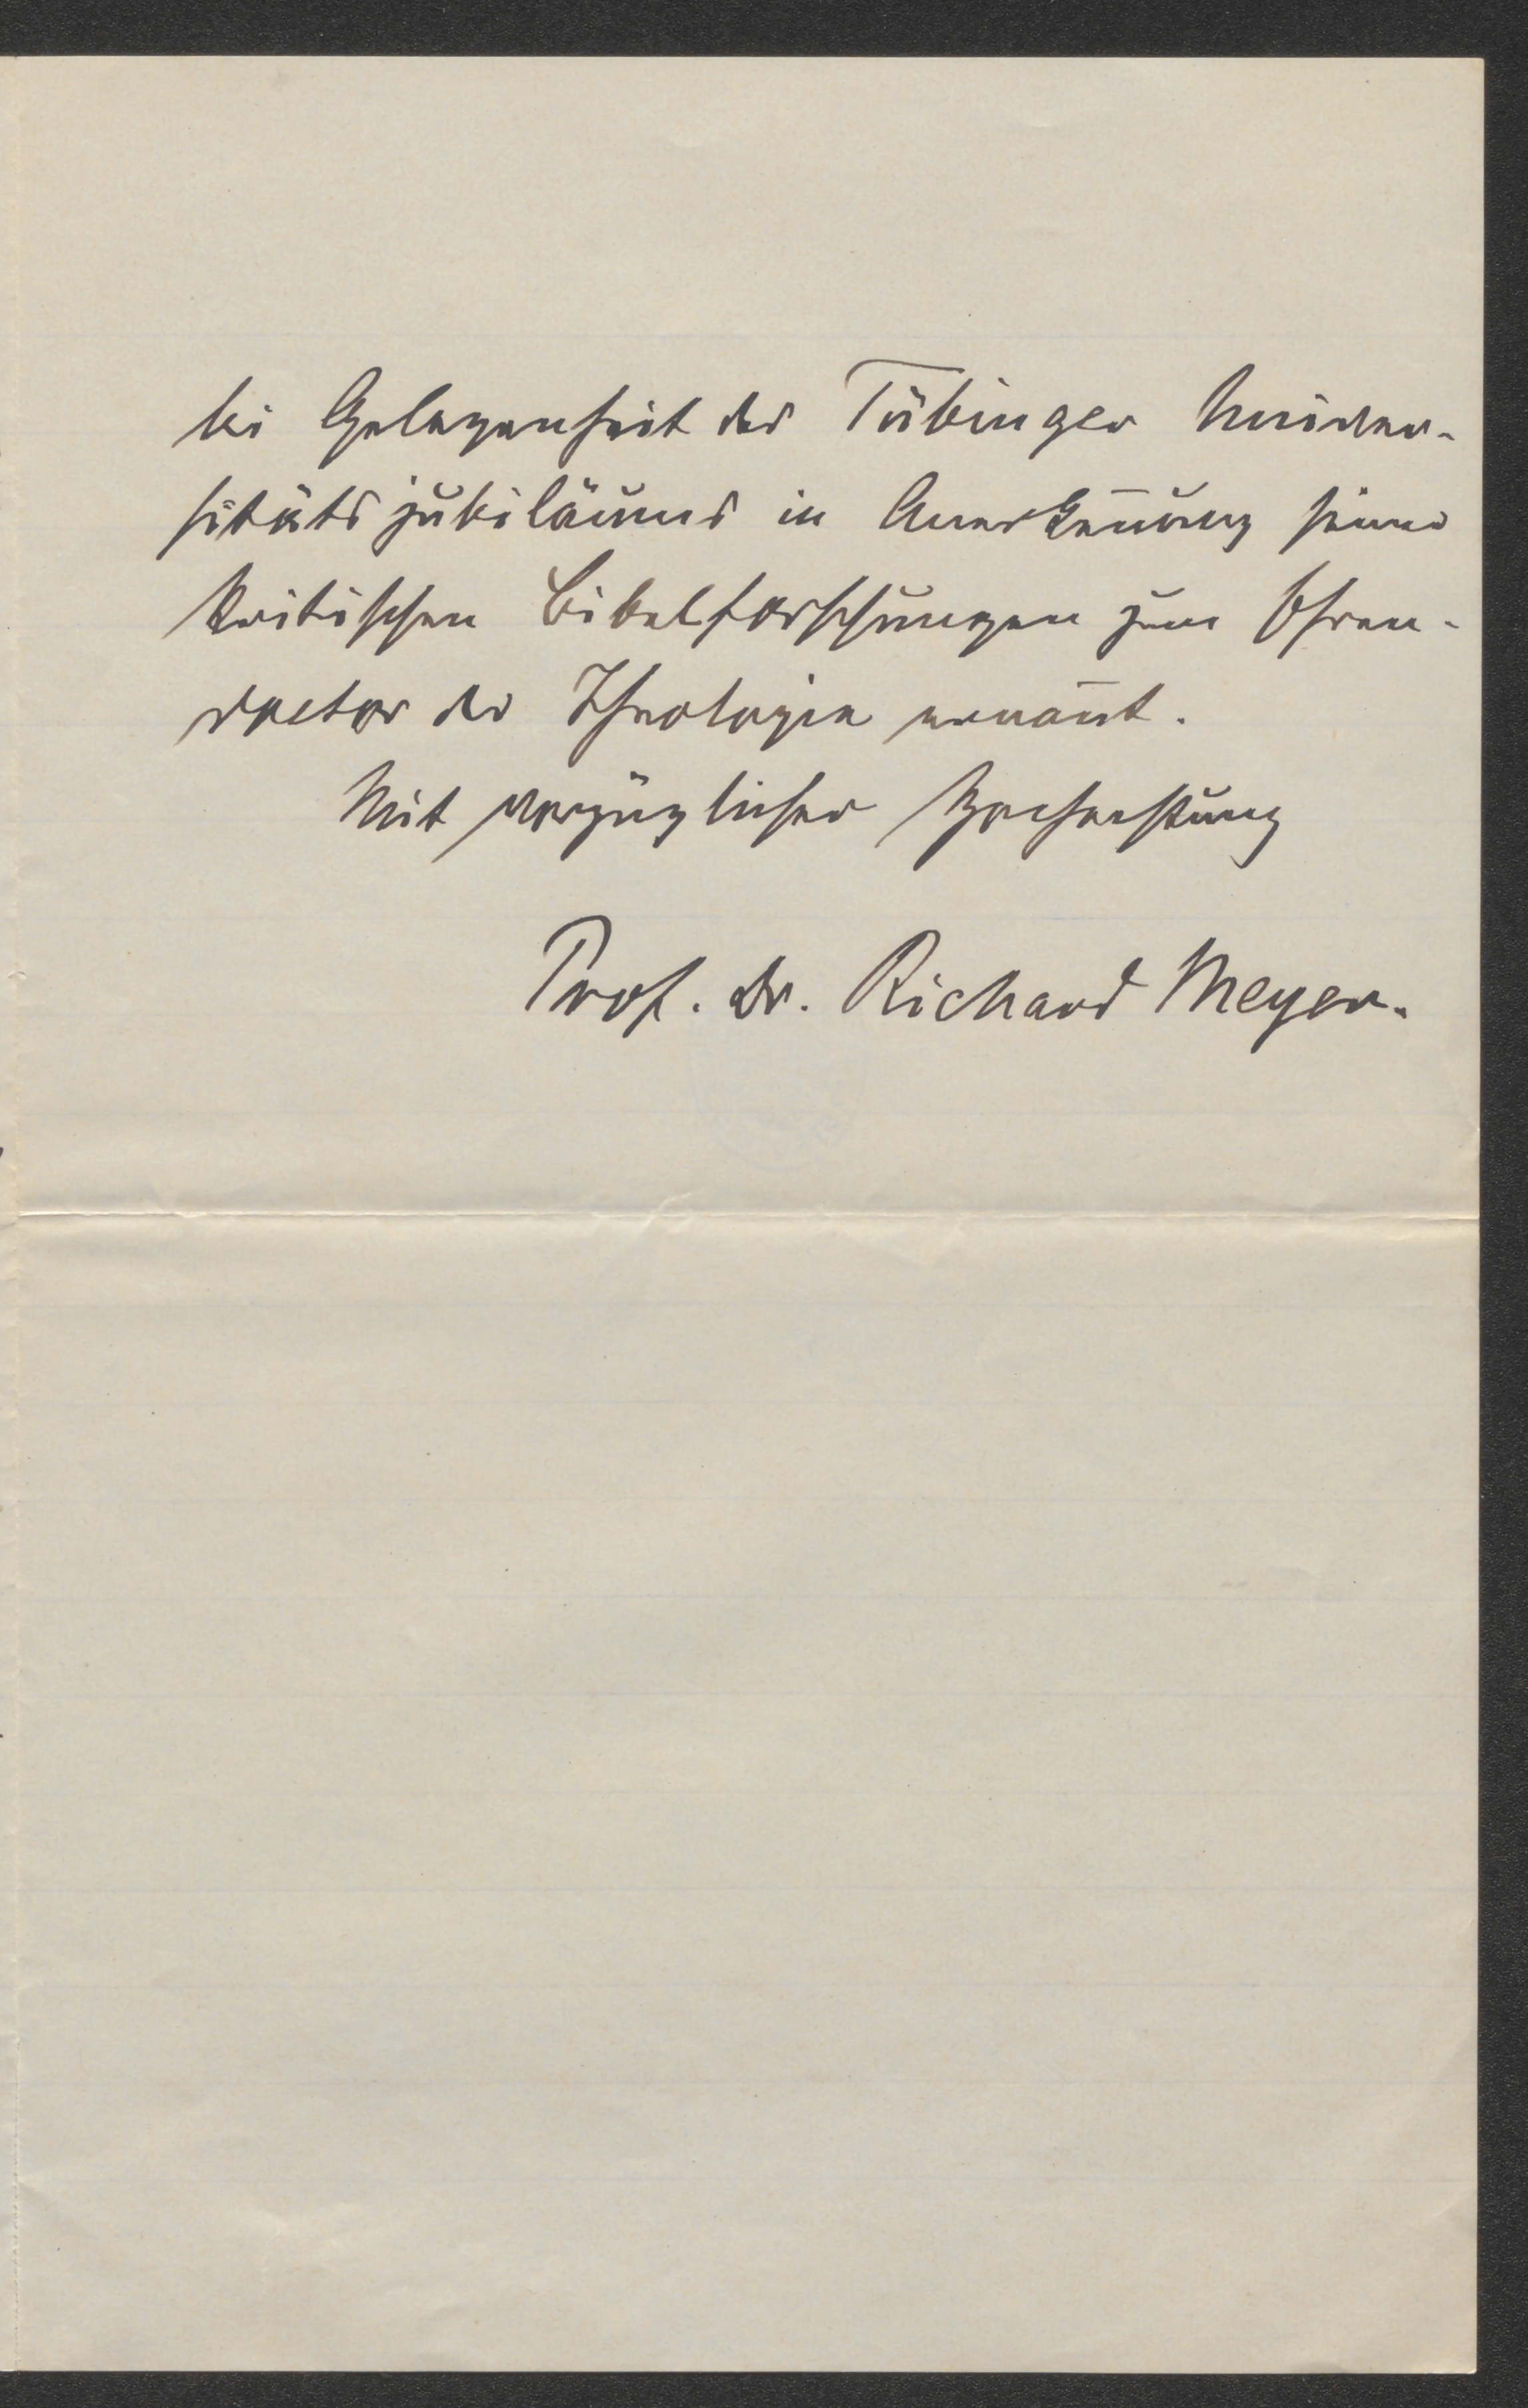 bei Gelegenheit des Tübinger Univer-
sitätsjubiläums in Anerkennung seiner
kritischen Bibelforschungen zum Ehren-
doctor der Theologie ernannt.
Mit vorzüglicher Hochachtung
Prof. Dr. Richard Meyer.